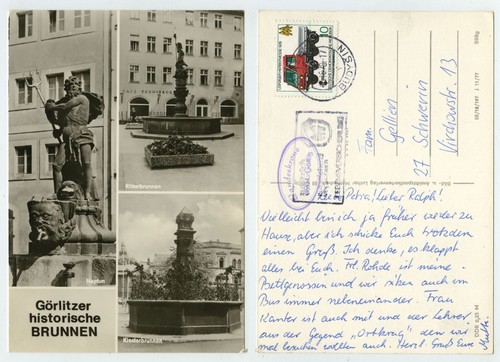 Röhrbrunnen
Neptun
Kinderbrunnen
Görlitzer
historische
BRUNNEN
10
Fam.
Gellien
27 Schwerin
Virchowstr. 13
Liebe Petra! Lieber Ralph!
Vielleicht bin ich ja früher wieder zu
Hause, aber ich schicke Euch trotzdem
einen Gruß. Ich denke, es klappt
alles bei Euch. Frl. Rohde ist meine
Bettgenossin und wir sitzen auch im
Bus immer nebeneinander. Frau
Kanter ist auch mit und der Lehrer
aus der Gegend "Ortkrug" den wir
mal besuchen wollten auch. Herzl. Grüße Eure
Mutti